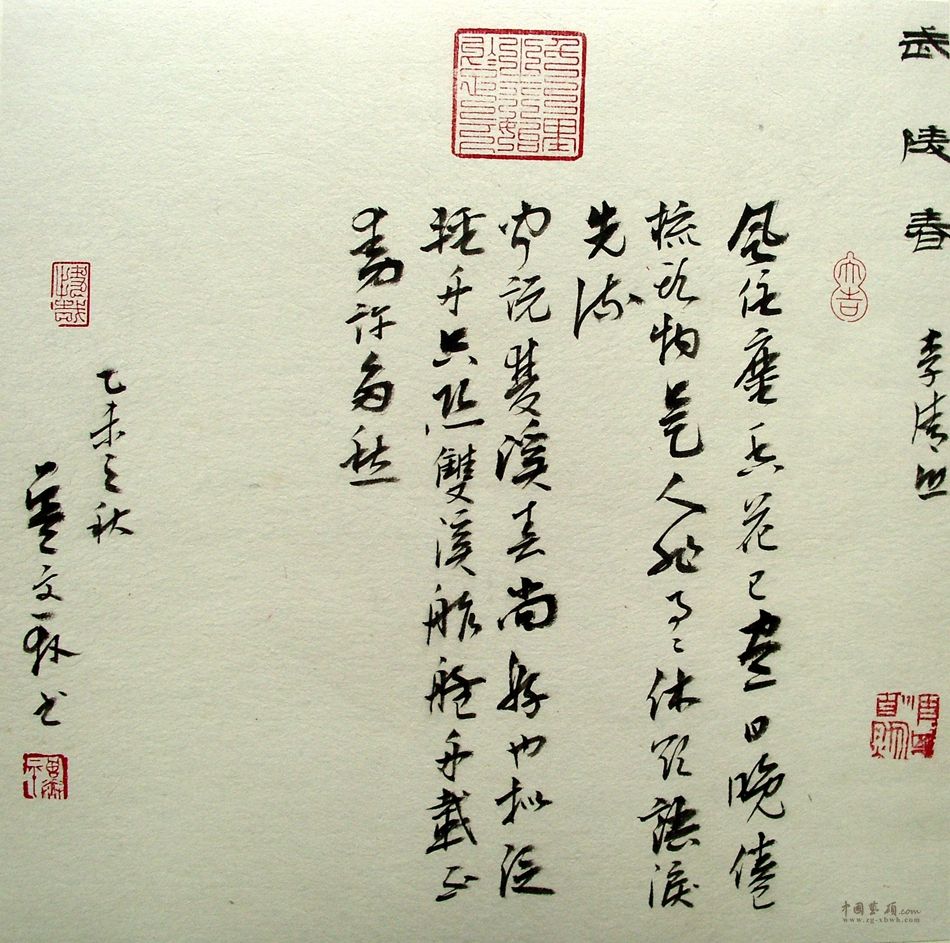 武陵春 李清照
風住塵香花已盡日晚倦
梳头物是人非事々休欲語淚
先流
闻说雙溪春尚好也拟泛
轻舟只恐雙溪舴艋舟載不
動許多愁
乙未之秋
文 书
大吉
www.zg-xbwh.com